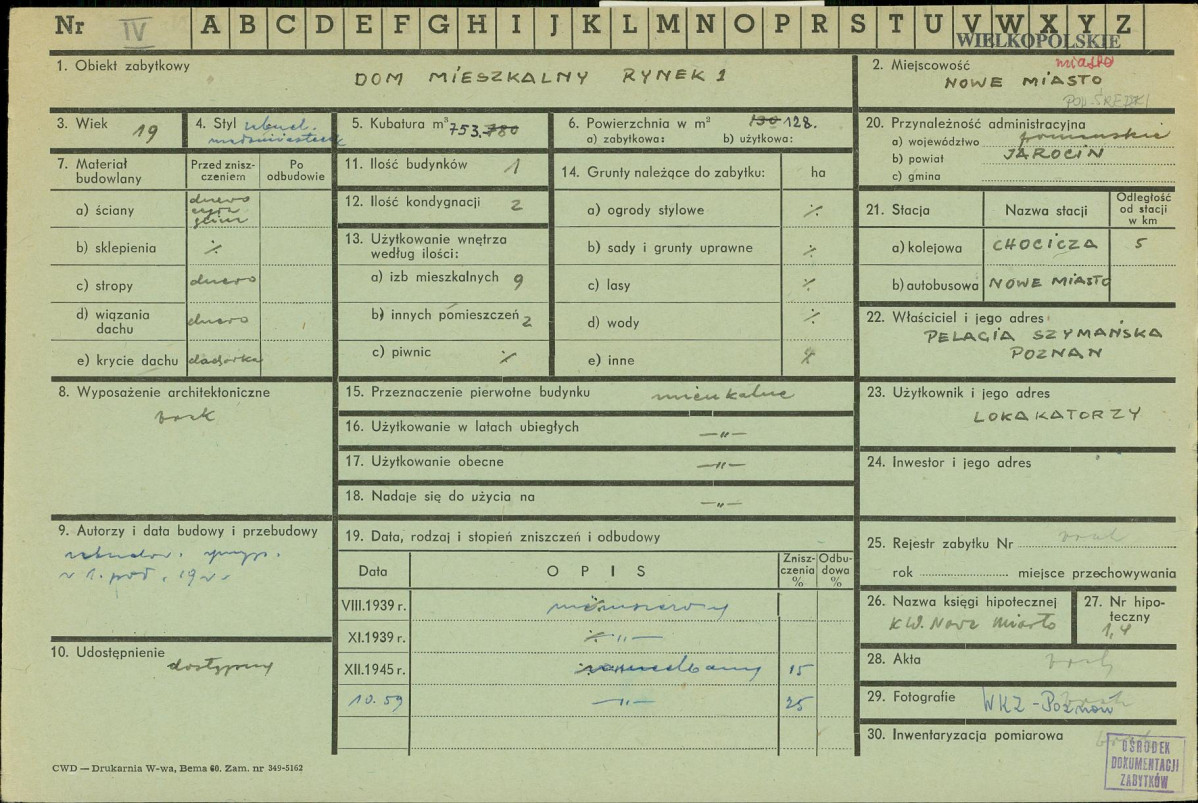 Nr IV A B C D E F G H I J K L M N O P R S T U V W X Y Z
WIELKOPOLSKIE
1. Obiekt zabytkowy
DOM MIESZKALNY RYNEK 1
2. Miejscowość miasto
NOWE MIASTO
3. Wiek 19
4. Styl
5. Kubatura m³ 753. 780
6. Powierzchnia w m² 130 128.
a) zabytkowa: b) użytkowa:
20. Przynależność administracyjna
a) województwo poznańskie
b) powiat JAROCIN
c) gmina
7. Materiał budowlany
Przed znisz-
czeniem
Po
odbudowie
a) ściany drewno
b) sklepienia ./.
c) stropy drewno
d) wiązania
dachu drewno
e) krycie dachu dachówka
8. Wyposażenie architektoniczne
brak
9. Autorzy i data budowy i przebudowy
10. Udostępnienie dostępny
11. Ilość budynków 1
12. Ilość kondygnacji 2
13. Użytkowanie wnętrza
według ilości:
a) izb mieszkalnych 9
b) innych pomieszczeń 2
c) piwnic ./.
14. Grunty należące do zabytku: ha
a) ogrody stylowe ./.
b) sady i grunty uprawne ./.
c) lasy ./.
d) wody ./.
e) inne
15. Przeznaczenie pierwotne budynku mieszkalne
16. Użytkowanie w latach ubiegłych —"—
17. Użytkowanie obecne —"—
18. Nadaje się do użycia na —"—
19. Data, rodzaj i stopień zniszczeń i odbudowy
Data
O P I S
Znisz-
czenia
%
Odbu-
dowa
%
VIII.1939 r.
XI.1939 r. —"—
XII.1945 r. zaniedbany 15
10.59 —"— 25
21. Stacja
Nazwa stacji
Odległość
od stacji
w km
a) kolejowa CHOCICZA 5
b) autobusowa NOWE MIASTO
22. Właściciel i jego adres
PELAGIA SZYMAŃSKA
POZNAN
23. Użytkownik i jego adres
LOKAKATORZY
24. Inwestor i jego adres
25. Rejestr zabytku Nr brak
rok miejsce przechowywania
26. Nazwa księgi hipotecznej
KW. Nowe Miasto
27. Nr hipo-
teczny
1,4
28. Akta brak
29. Fotografie WKZ - Poznań
30. Inwentaryzacja pomiarowa
OŚRODEK
DOKUMENTACJI
ZABYTKÓW
CWD — Drukarnia W-wa, Bema 60. Zam. nr 349-5162